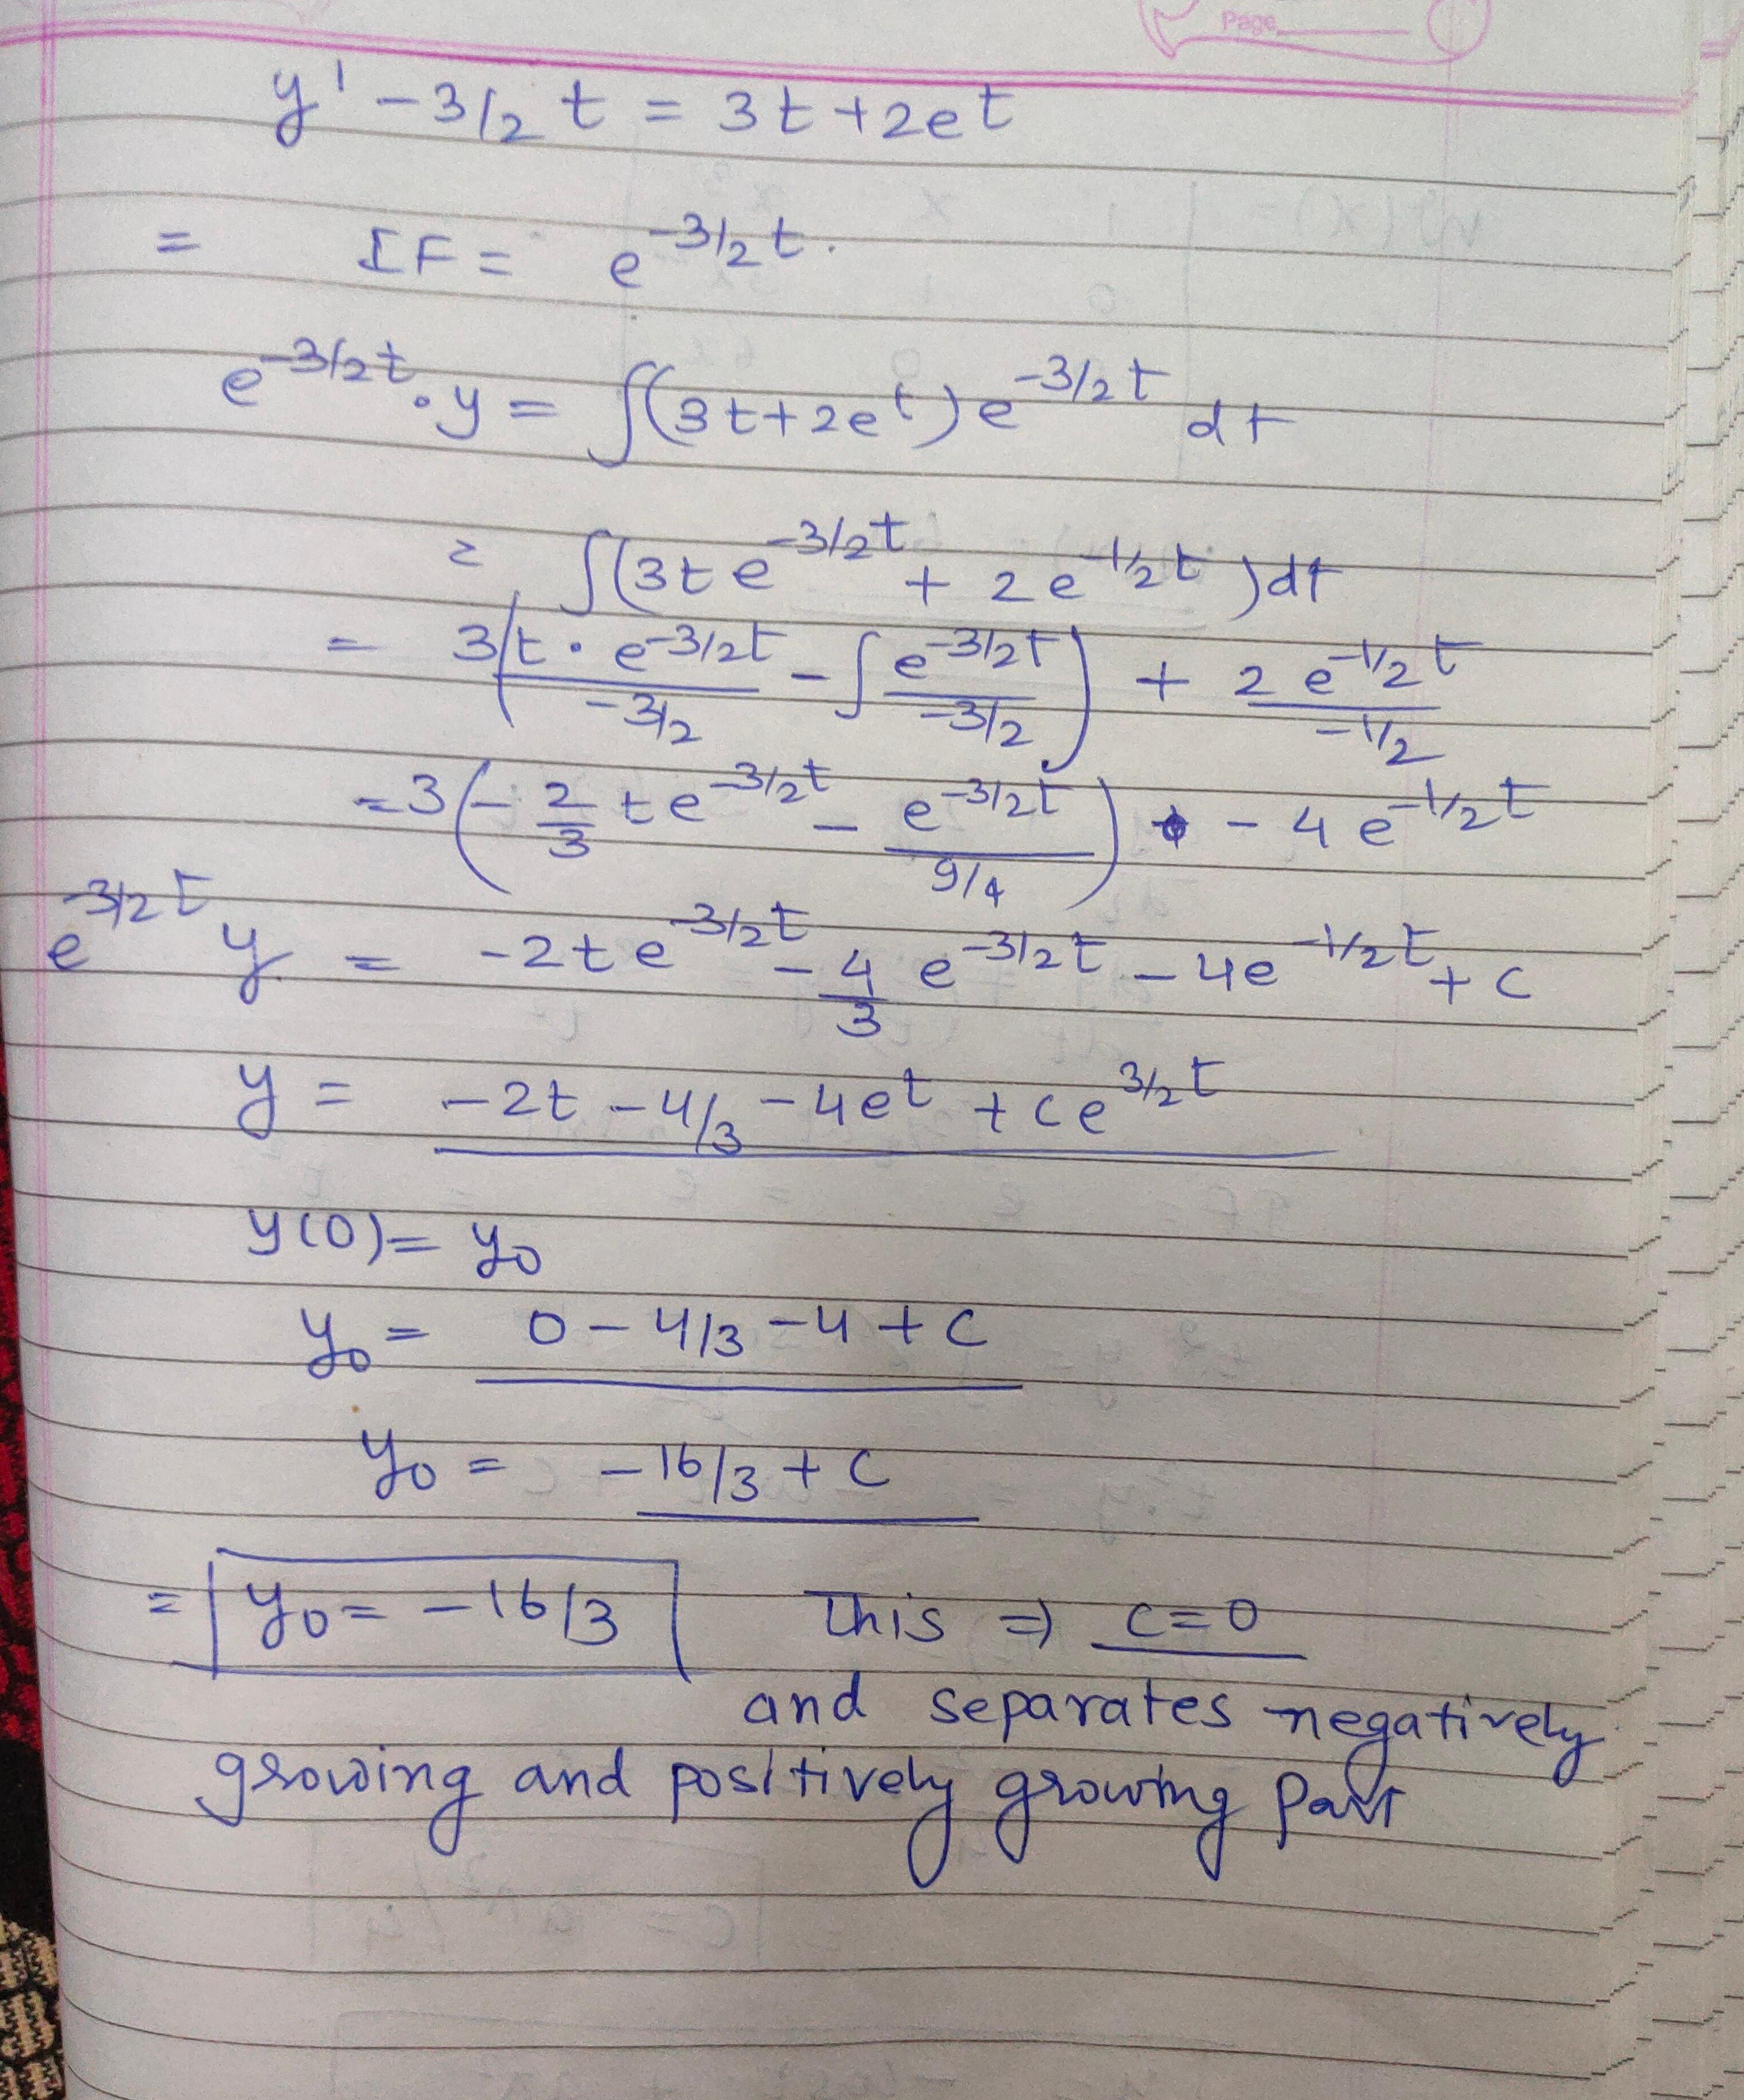 Page
y' - 3/2 t = 3t + 2et
= IF = e^-3/2 t.
e^-3/2 t . y = ∫(3t + 2e^t) e^-3/2 t dt
= ∫(3t e^-3/2 t + 2 e^-1/2 t) dt
= 3(t . e^-3/2 t / -3/2 - ∫ e^-3/2 t / -3/2) + 2 e^-1/2 t / -1/2
= 3(- 2/3 t e^-3/2 t - e^-3/2 t / 9/4) - 4 e^-1/2 t
e^-3/2 t y = -2 t e^-3/2 t - 4/3 e^-3/2 t - 4e^-1/2 t + c
y = -2t - 4/3 - 4e^t + c e^3/2 t
y(0) = y0
y0 = 0 - 4/3 - 4 + c
y0 = -16/3 + c
= y0 = -16/3 This ⇒ c = 0
and separates negatively
growing and positively growing part